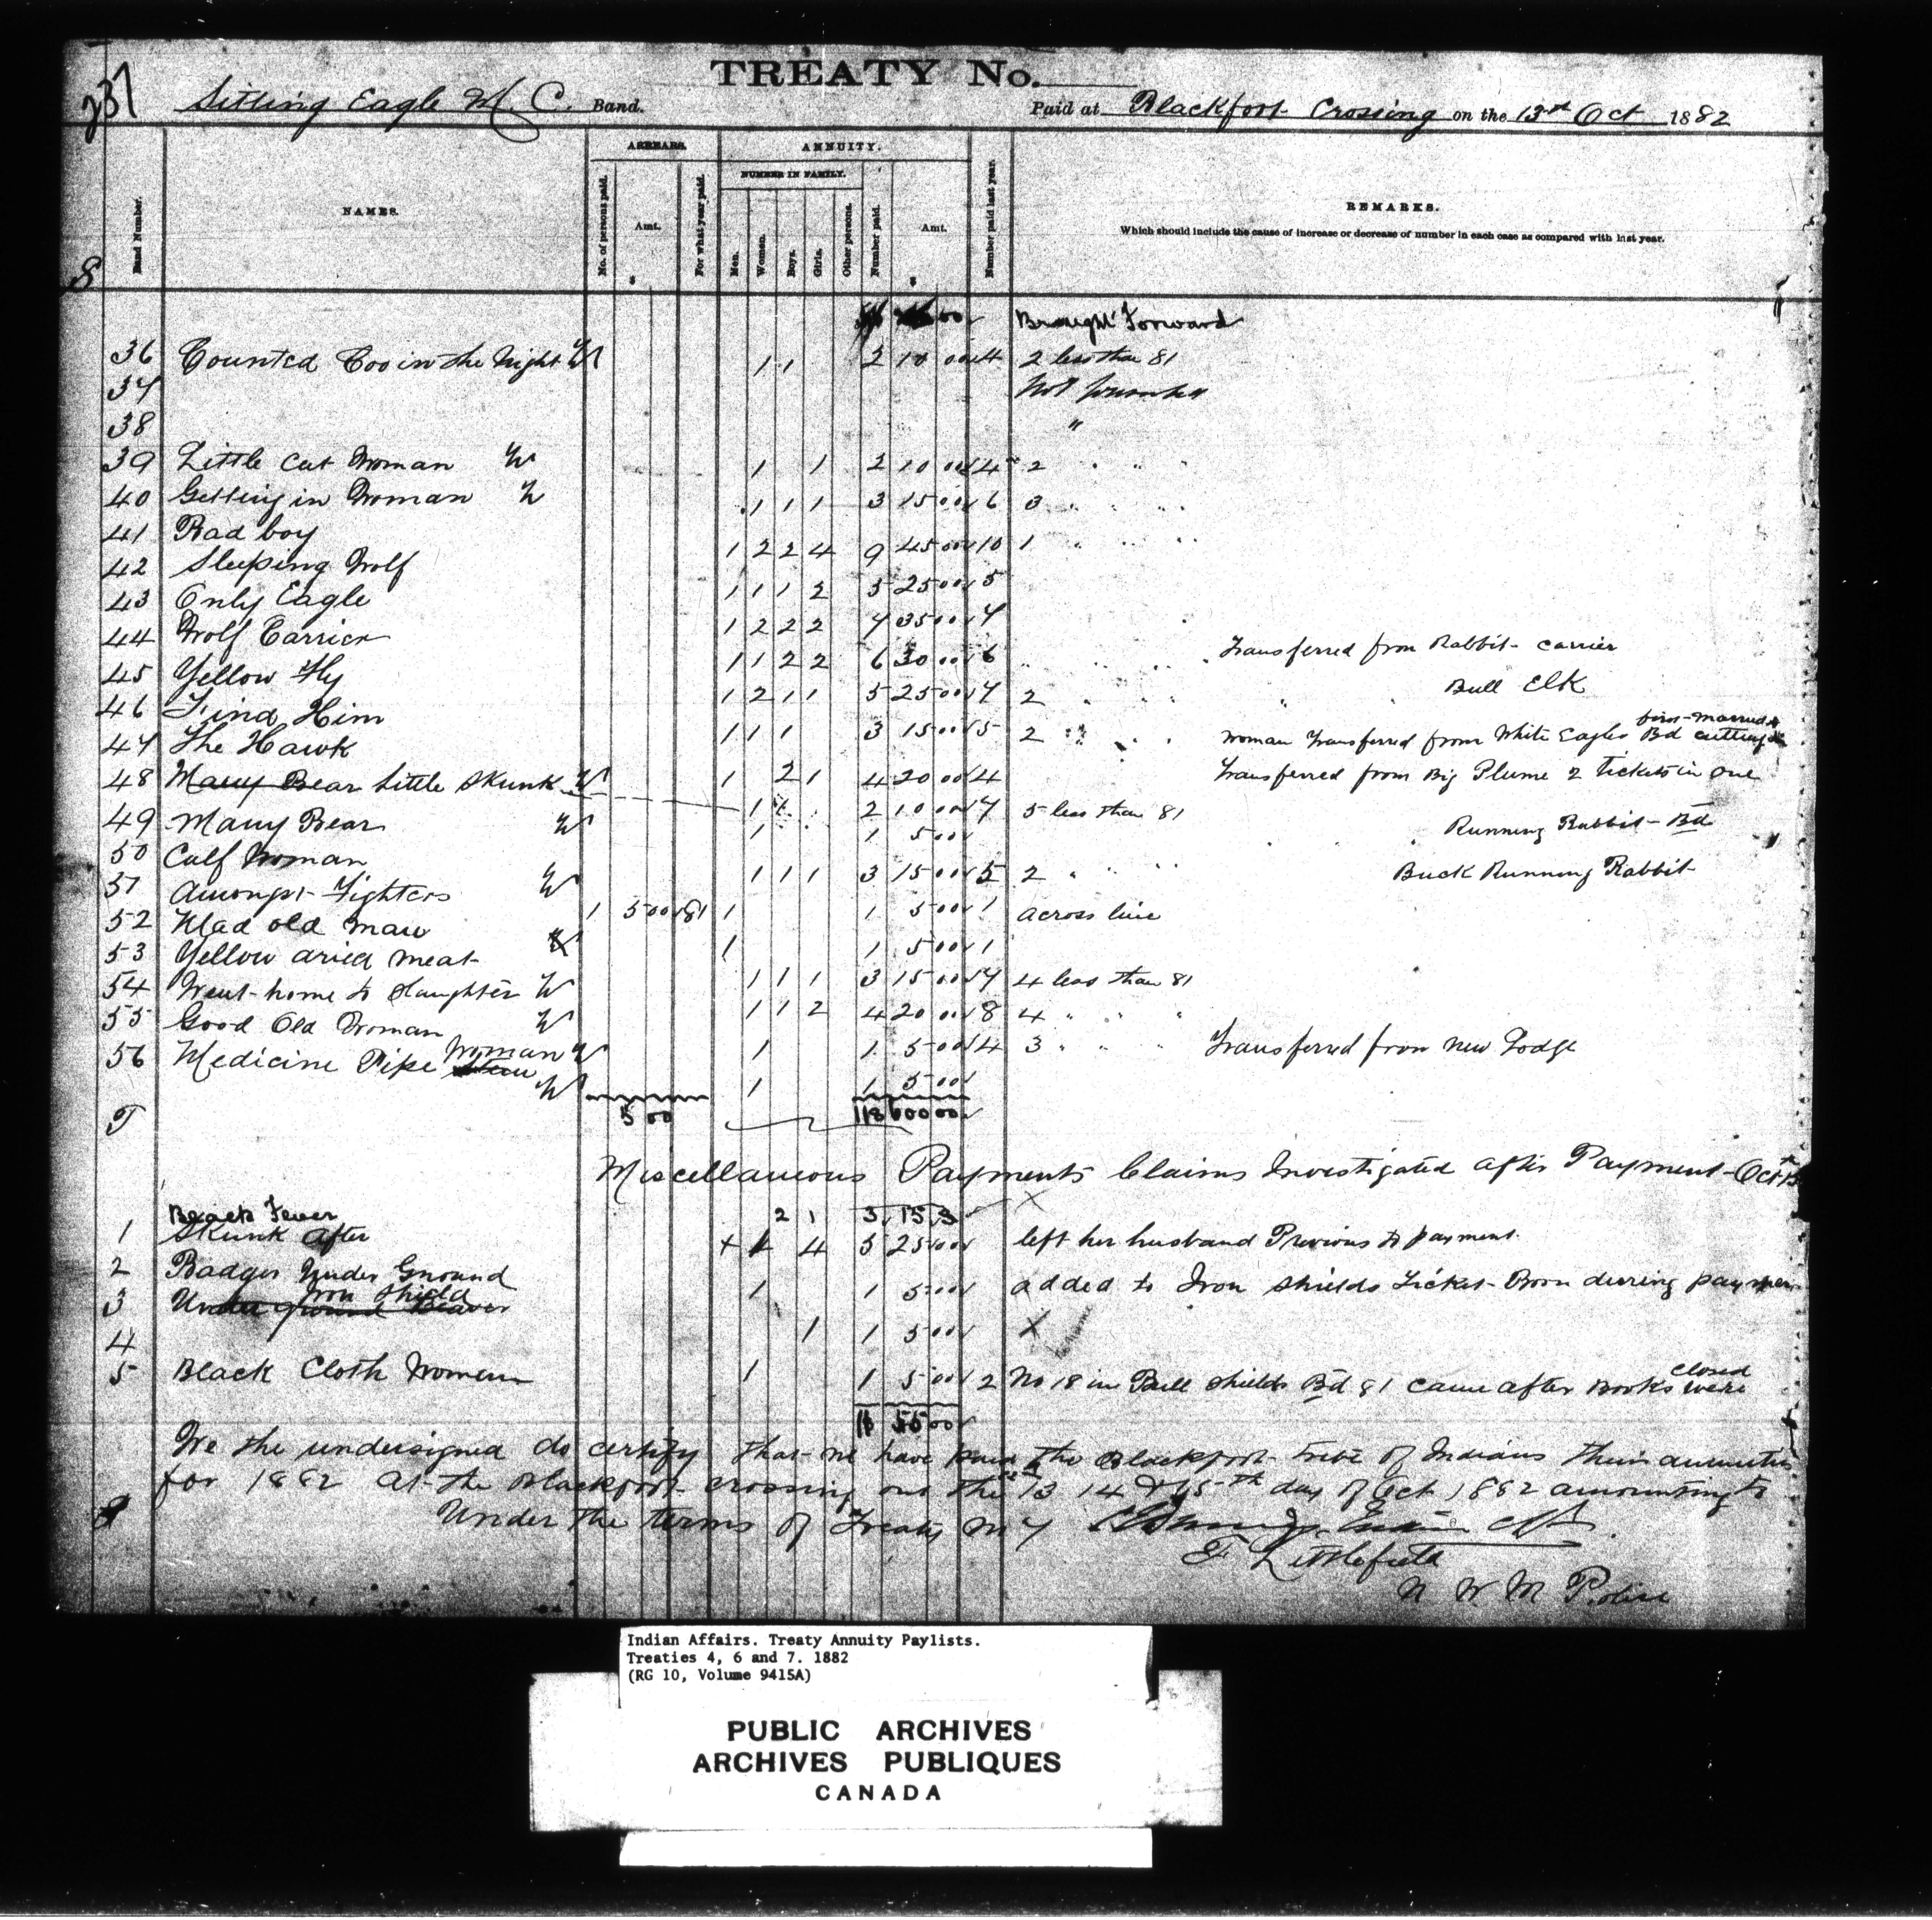 237
TREATY No.
Sitting Eagle M. C. Band.
Paid at Blackfoot Crossing on the 13th Oct 1882
8
Band Number.
NAMES.
ARREARS.
No. of persons paid.
Amt.
For what year paid.
ANNUITY.
NUMBER IN FAMILY.
Men.
Women.
Boys.
Girls.
Other persons.
Number paid.
Amt.
Number paid last year.
REMARKS.
Which should include the cause of increase or decrease of number in each case as compared with last year.
$ $
00 Brought Forward
36 Counted Coo in the Night W 1 1 2 10 00 4 2 less than 81
37 Not
38 "
39 Little Cut Woman W 1 1 2 10 00 4 2 " " "
40 Getting in Woman W 1 1 1 3 15 00 6 3 " " "
41 Bad boy 1 2 2 4 9 45 00 10 1 " " "
42 Sleeping Wolf 1 1 1 2 5 25 00 5
43 Only Eagle 1 2 2 2 7 35 00 7
44 Wolf Carrier 1 1 2 2 6 30 00 6 Transferred from Rabbit carrier
45 Yellow Fly 1 2 1 1 5 25 00 7 2 " " " " " Bull Elk
46 Find Him 1 1 1 3 15 00 5 2 " " " Woman Transferred from White Eagles Bd
47 The Hawk 1 2 1 4 20 00 4 Transferred from Big Plume 2 Tickets in one
48 Many Bear Little Skunk W 1 1 2 10 00 7 5 less than 81
49 Many Bear W 1 1 5 00 Running Rabbit Bd
50 Calf Woman 1 1 1 3 15 00 5 2 " " " Buck Running Rabbit
51 Amongst Fighters W 1 5 00 81 1 1 5 00 1 across line
52 Mad old man 1 1 5 00 1
53 Yellow dried meat W 1 1 1 3 15 00 7 4 less than 81
54 Went home to Slaughter W 1 1 2 4 20 00 8 4 " " "
55 Good Old Woman W 1 1 5 00 4 3 " " " Transferred from New Lodge
56 Medicine Pipe Woman W 1 1 5 00
T 5 00 118 600 00
Miscellaneous Payments Claims Investigated after Payment Oct 15
Black Fever 2 1 3 15
1 Skunk After 4 5 25 00 left her husband Previous to payment.
2 Badger Under Ground 1 1 5 00 added to Iron Shields Ticket Born during payment
3 Under ground Beaver Iron Shield 1 1 5 00 X
4
5 Black Cloth Woman 1 1 5 00 2 No 18 in Bull Shields Bd 81 came after Books were closed
11 55 00
We the undersigned do certify that we have paid the Blackfoot tribe of Indians their annuities
for 1882 at the Blackfoot crossing on the 13 14 & 15th day of Oct 1882 amounting to
Under the terms of Treaty No 7
F Littlefield
N W M Police
Indian Affairs. Treaty Annuity Paylists.
Treaties 4, 6 and 7. 1882
(RG 10, Volume 9415A)
PUBLIC ARCHIVES
ARCHIVES PUBLIQUES
CANADA